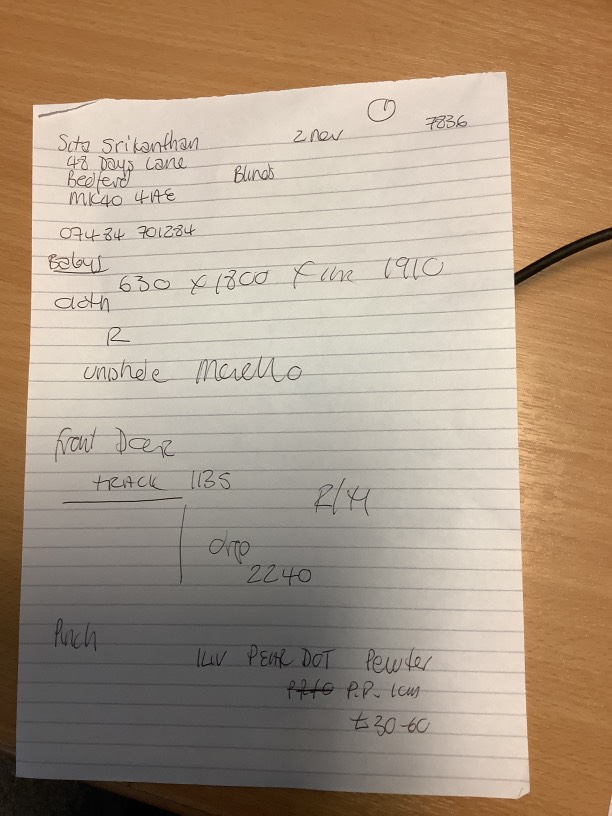 ① 7836
Sita Srikanthan 2 nov
48 Days Lane
Bedford Blinds
MK40 4AE
07484 701284
Babys
630 x 1800 x 1910
cloth
R
unishade Morello
Front Door
TRACK 1135
R/H
drop
2240
Pinch
PEAR DOT Pewter
P.P. 1cm
£30-60